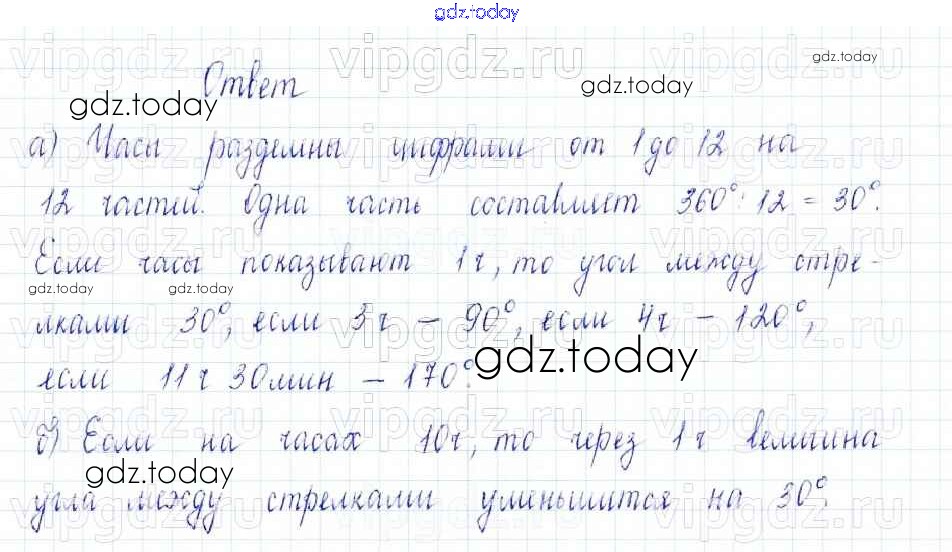 gdz.today
Ответ
а) Часы разделины цифрами от 1 до 12 на
12 частей. Одна часть составляет 360° : 12 = 30°.
Если часы показывают 1ч, то угол между стре-
лками 30°, если 3ч – 90°, если 4ч – 120°,
если 11ч 30мин – 170°.
б) Если на часах 10ч, то через 1ч величина
угла между стрелками уменьшится на 30°.
vipgdz.ru
gdz.today
gdz.today
gdz.today
gdz.today
gdz.today
gdz.today
gdz.today